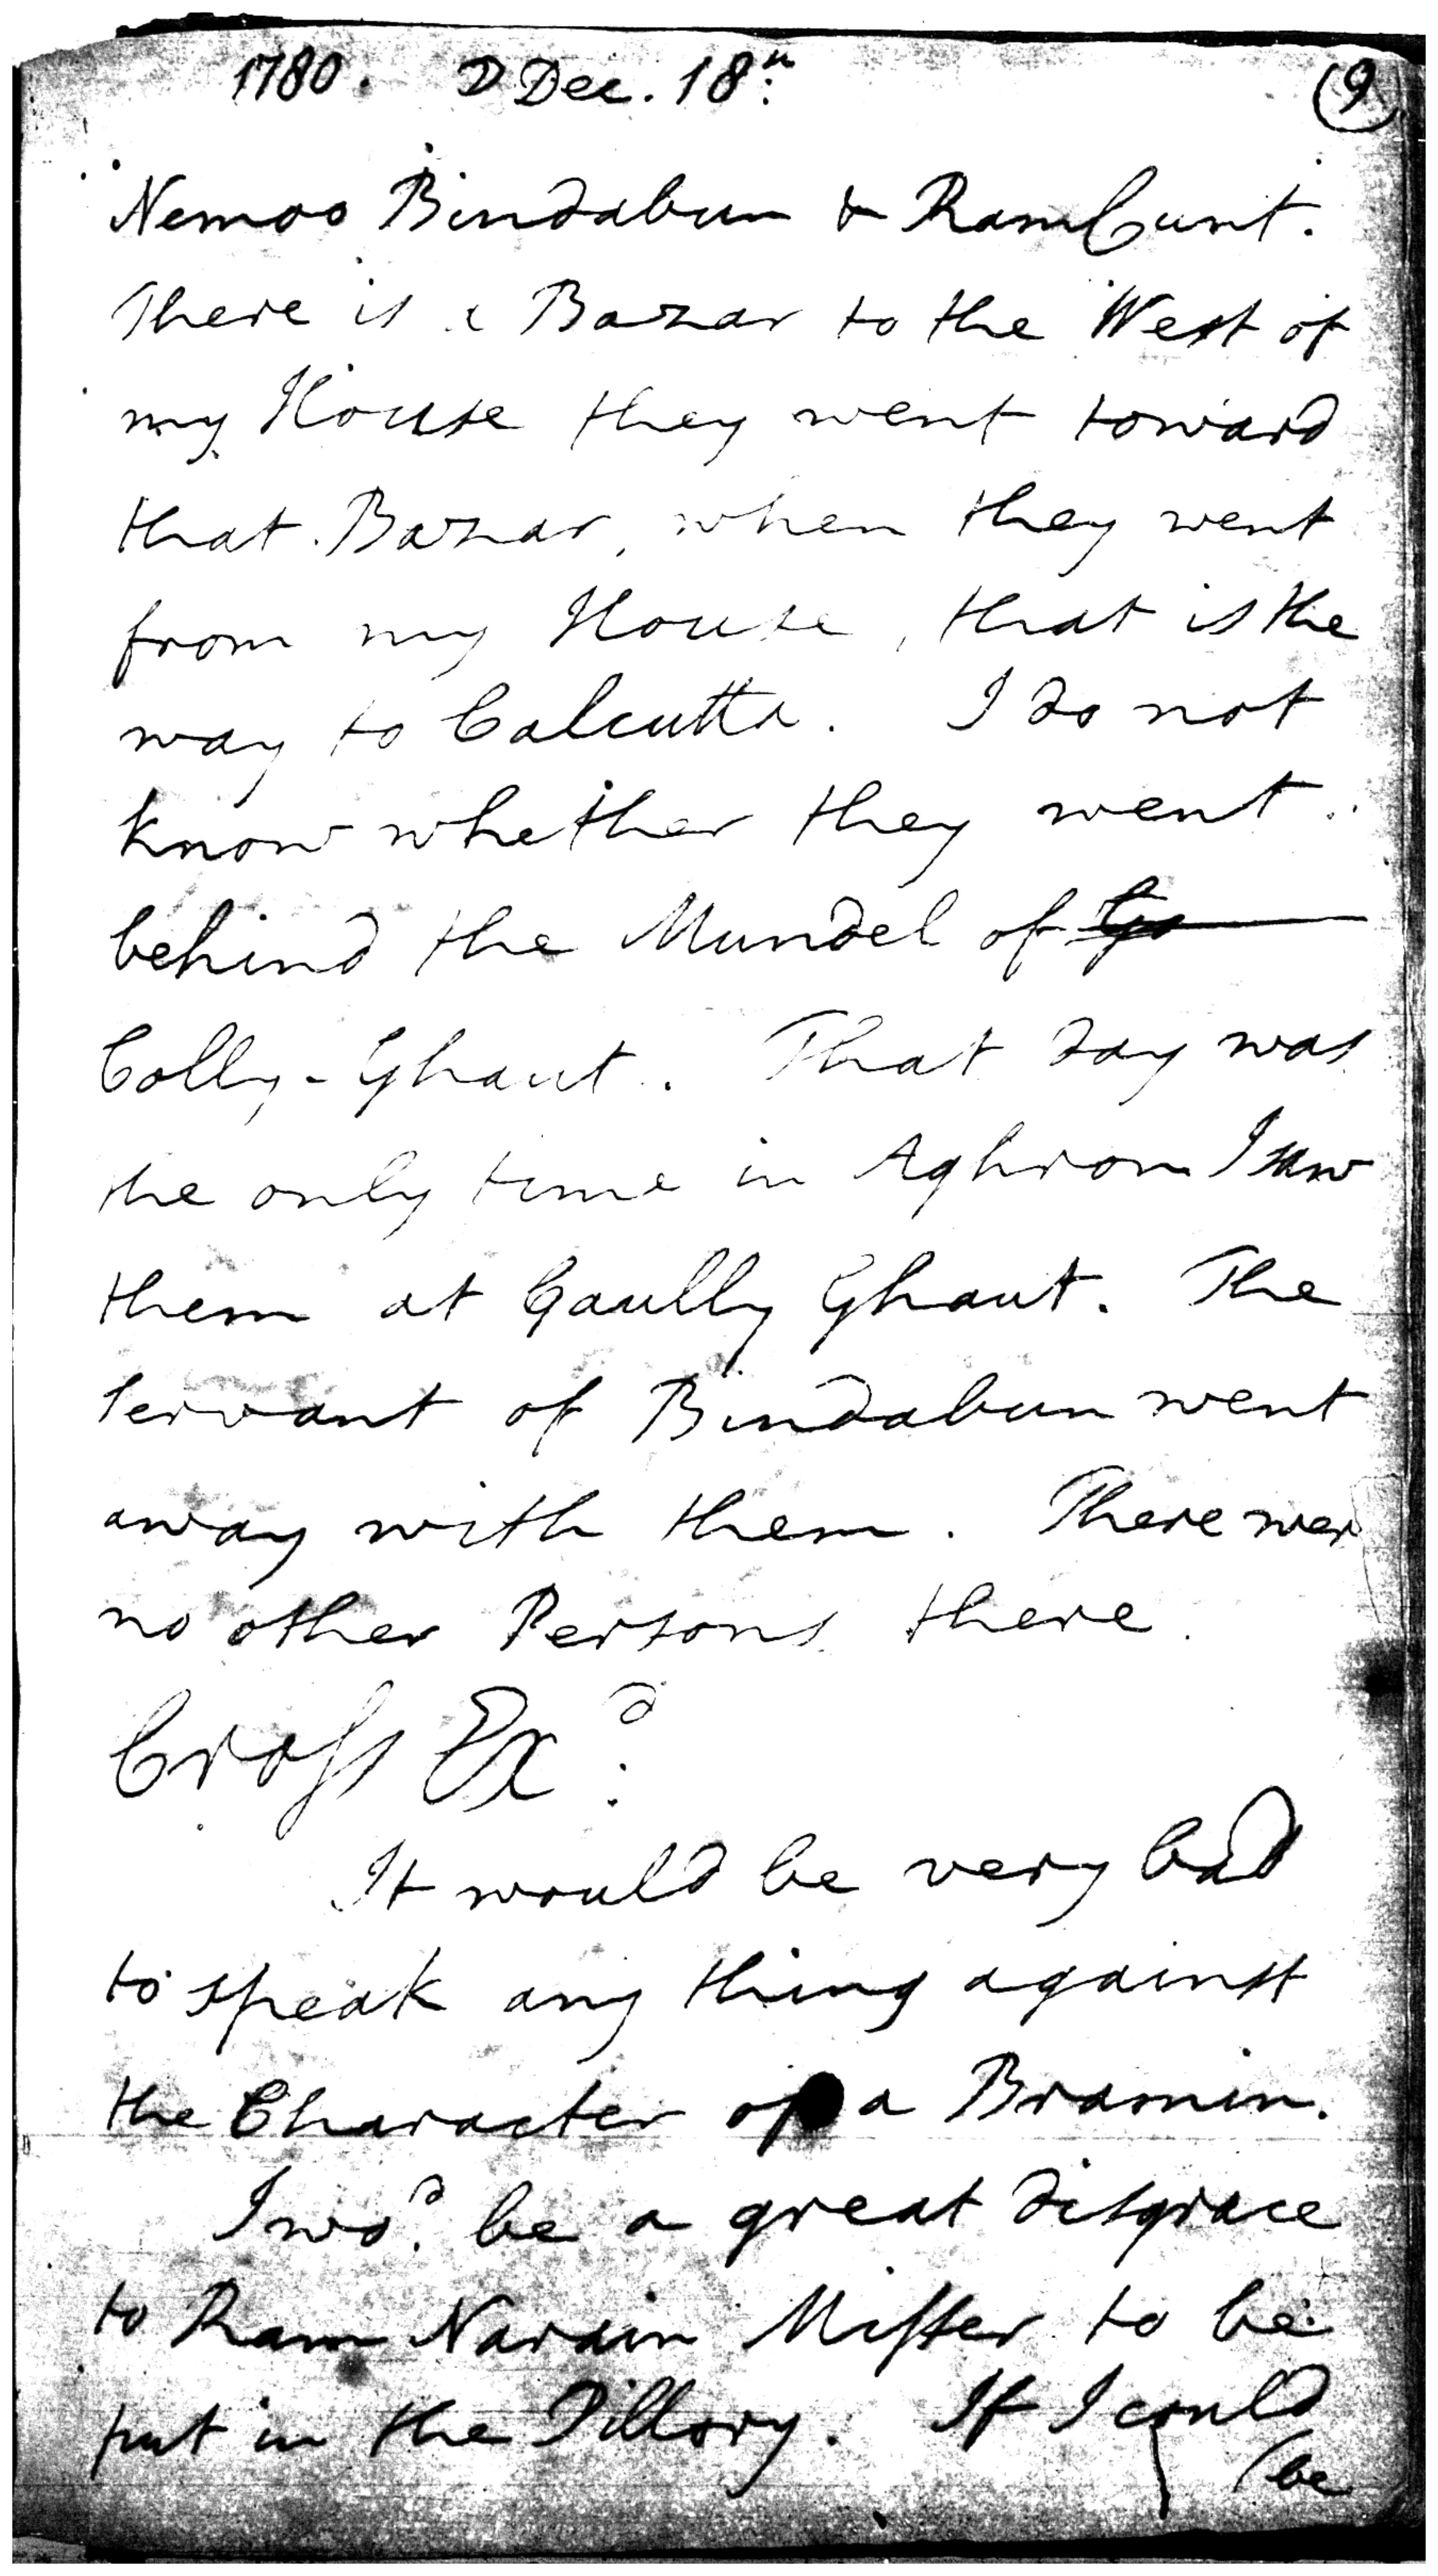 1780. D Dec. 18th. (9)
Nemoo Bindabun & RamCunt.
There is a Bazar to the West of
my House they went toward
that Bazar, when they went
from my House, that is the
way to Calcutta. I do not
know whether they went
behind the Mundel of
Colly-Ghaut. That day was
the only time in Aghron I saw
them at Caully Ghaut. The
Servant of Bindabun went
away with them. There wer
no other Persons there.
Cross Exd:
It would be very bad
to speak any thing against
the Character of a Bramin.
I wod. be a great disgrace
to Ram Narain Misser to be
put in the Pillory. If I could
(be